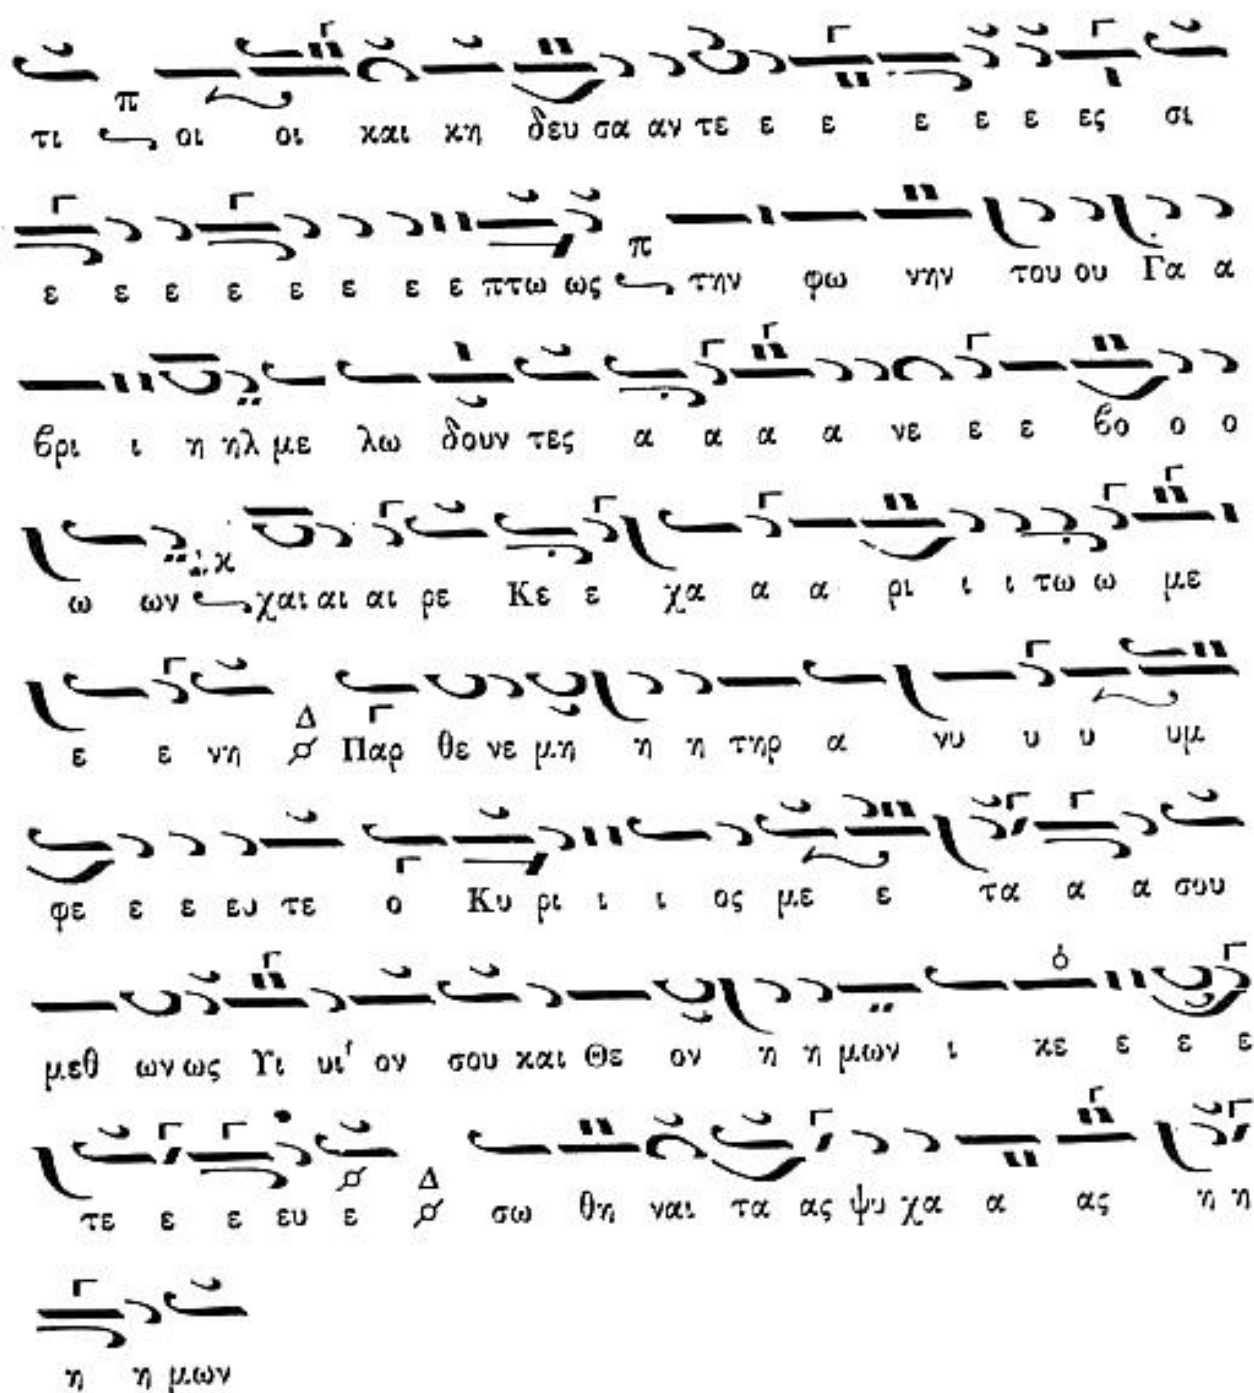 τι π οι οι και κη δευ σα αν τε ε ε ε ε ε ες σι
ε ε ε ε ε ε ε ε πτω ως π την φω νην του ου Γα α
βρι ι η ηλ με λω δουν τες α α α α νε ε ε βο ο ο
ω ων χαι αι αι ρε Κε ε χα α α ρι ι ι τω ω με
ε ε νη Δ Παρ θε νε μη η η τηρ α νυ υ υ υμ
φε ε ε ευ τε ο Κυ ρι ι ι ος με ε τα α α σου
μεθ ων ως Υι υι ον σου και Θε ον η η μων ι κε ε ε ε
τε ε ε ευ ε Δ σω θη ναι τα ας ψυ χα α ας η η
η η μων